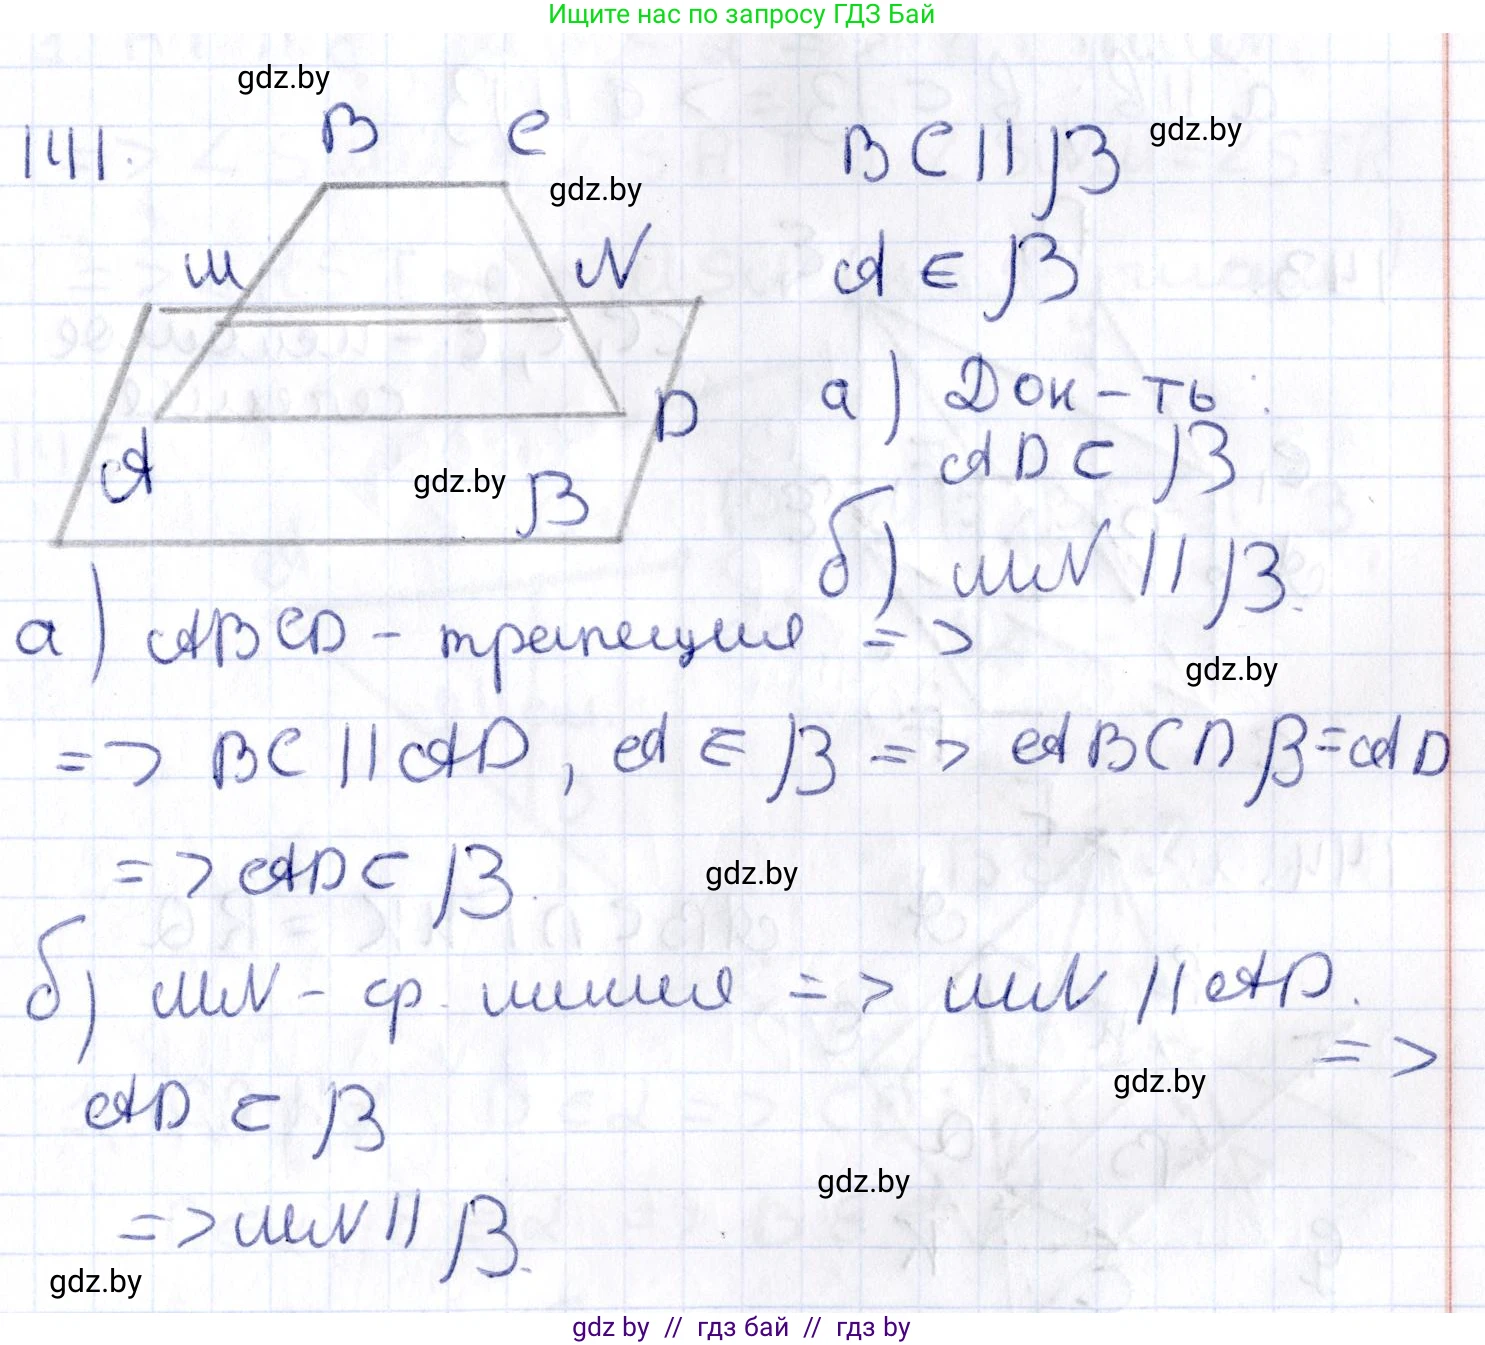 Ищите нас по запросу ГДЗ Бай
gdz.by
141.
B C
gdz.by
BC || β
gdz.by
M N
A ∈ β
а) Док-ть:
AD ⊂ β
D
A
gdz.by
β
б) MN || β.
а) ABCD - трапеция =>
gdz.by
=> BC || AD, A ∈ β => ABC ∩ β = AD
=> AD ⊂ β.
gdz.by
б) MN - ср. линия => MN || AD.
=>
gdz.by
AD ⊂ β
gdz.by
=> MN || β.
gdz.by
gdz by // гдз бай // гдз by